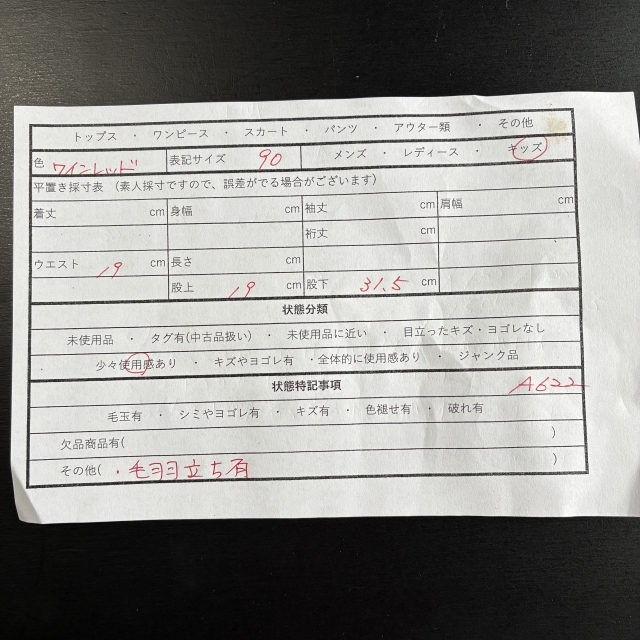 トップス ・ ワンピース ・ スカート ・ パンツ ・ アウター類 ・ その他
色 ワインレッド 表記サイズ 90 メンズ ・ レディース ・ キッズ
平置き採寸表 (素人採寸ですので、誤差がでる場合がございます)
着丈 cm 身幅 cm 袖丈 cm 肩幅 cm
裄丈 cm
ウエスト 19 cm 長さ cm
股上 19 cm 股下 31.5 cm
状態分類
未使用品 ・ タグ有(中古品扱い) ・ 未使用品に近い ・ 目立ったキズ・ヨゴレなし
少々使用感あり ・ キズやヨゴレ有 ・全体的に使用感あり ・ ジャンク品
状態特記事項 A622
毛玉有 ・ シミやヨゴレ有 ・ キズ有 ・ 色褪せ有 ・ 破れ有
欠品商品有( )
その他( ・毛羽立ち有 )